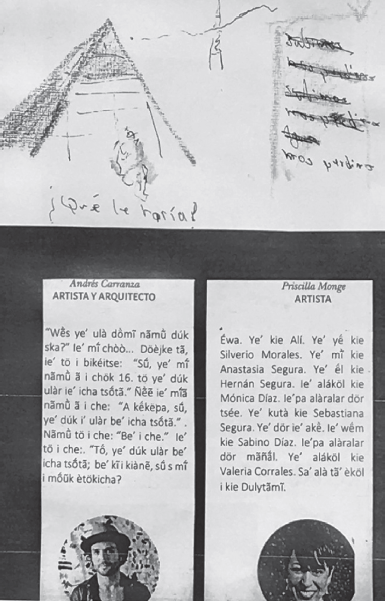 ¡Qué le haría!
mas perdimo
Andrés Carranza
ARTISTA Y ARQUITECTO
“Wẽ́s ye’ ulà dò̀mĩ nãmũ̀ dúk
ska?” Ie’ mĩ̀ chòò... Döèjke tã,
ie’ tö i bikéitse: “Sṹ, ye’ mĩ̀
nãmũ̀ ã i chök 16. tö ye’ dúk
ulàr ie’ icha tsö̀tã.” Ñẽ̀ẽ ie’ mĩ̀ã
nãmũ̀ ã i che: “A kékepa, sṹ,
ye’ dúk i’ ulàr be’ icha tsö̀tã.” .
Nãmũ̀ tö i che: “Be’ i che.” Ie’
tö i che:. “Tó, ye’ dúk ulàr be’
icha tsö̀tã; be’ kĩ i kiànẽ, sṹ s mĩ̀
i mṍũk ètökicha?
Priscilla Monge
ARTISTA
Éwa. Ye’ kie Alí. Ye’ yẽ́ kie
Silverio Morales. Ye’ mĩ̀ kie
Anastasia Segura. Ye’ ẽ́l kie
Hernán Segura. Ie’ aláköl kie
Mónica Díaz. Ie’pa alàralar dör
tsée. Ye’ kutà kie Sebastiana
Segura. Ye’ dör ie’ akẽ̀. Ie’ wẽ́m
kie Sabino Díaz. Ie’pa alàralar
dör mãñã́l. Ye’ aláköl kie
Valeria Corrales. Sa’ alà tã’ èköl
i kie Dulytãmĩ̀.